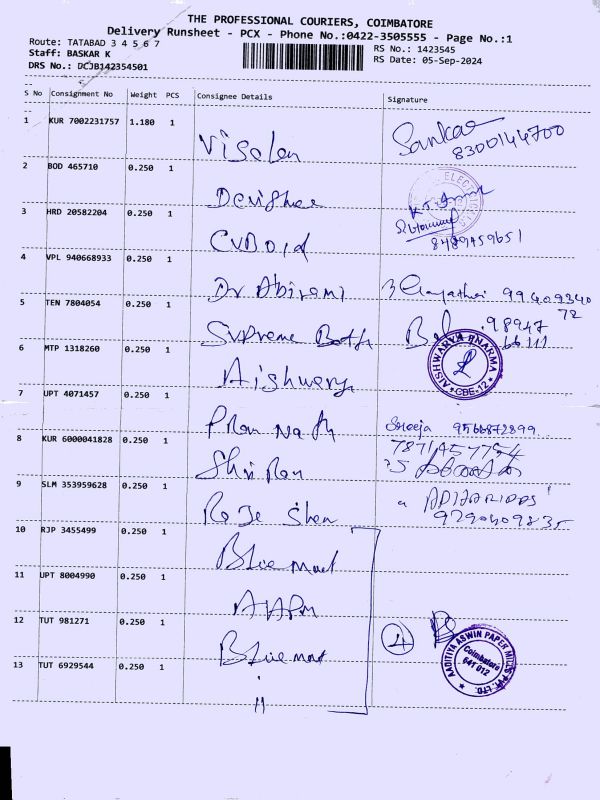 THE PROFESSIONAL COURIERS, COIMBATORE
Delivery Runsheet - PCX - Phone No.:0422-3505555 - Page No.:1
Route: TATABAD 3 4 5 6 7
Staff: BASKAR K
DRS No.: DCJB142354501
RS No.: 1423545
RS Date: 05-Sep-2024
S No Consignment No Weight PCS Consignee Details Signature
1 KUR 7002231757 1.180 1
Sankar
8300144700
2 BOD 465710 0.250 1
ELECTRICALS
3 HRD 20582204 0.250 1
CVBoid
8489459651
4 VPL 940668933 0.250 1
Dr Abirami
Gayathri 99409340
72
5 TEN 7804054 0.250 1
Supreme
98947
66111
6 MTP 1318260 0.250 1
Aishwarya
AISHWARYA PHARMA
CBE-12
7 UPT 4071457 0.250 1
Pran Nath
Sreeja 9566872899
8 KUR 6000041828 0.250 1
Shri Ram
7871457754
9 SLM 353959628 0.250 1
10 RJP 3455499 0.250 1
Blue mount
11 UPT 8004990 0.250 1
AAPM
12 TUT 981271 0.250 1
Blue mount
4
13 TUT 6929544 0.250 1
"
AADITYA ASWIN PAPER MILLS PVT. LTD.
Coimbatore
641 012